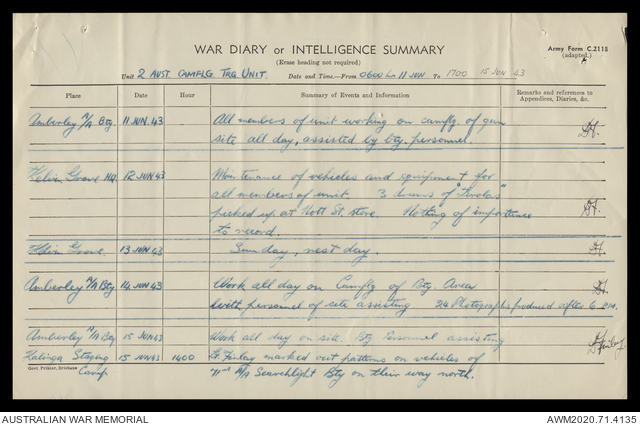 WAR DIARY or INTELLIGENCE SUMMARY
(Erase heading not required)
Army Form C.2118
(adapted.)
Unit 2 AUST. CAMFLG TRG UNIT. Date and Time—From 0600 hr 11 JUN To 1700 15 JUN 43
Place Date Hour Summary of Events and Information Remarks and references to Appendices, Diaries, &c.
Amberley A/A Bty 11 JUN. 43 All members of unit working on camflg. of gun
site all day, assisted by bty. personnel.
Kelvin Grove HQ. 12 JUN 43 Maintenance of vehicles and equipment for
all members of unit. 3 drums of
picked up at Nott St. store. Nothing of importance
to record.
Kelvin Grove. 13 JUN 43 Sunday, rest day.
Amberley A/A Bty 14 JUN 43 Work all day on Camflg of Bty Area
with personnel of site assisting 24 Photographs produced after 6 P.M.
Amberley A/A Bty 15 JUN 43 Work all day on site. Bty Personnel assisting
Kalinga Staging 15 JUN 43 1400 Lt. Finlay marked out patterns on vehicles of
Camp A/A Searchlight Bty on their way north.
Govt. Printer, Brisbane
AUSTRALIAN WAR MEMORIAL AWM2020.71.4135